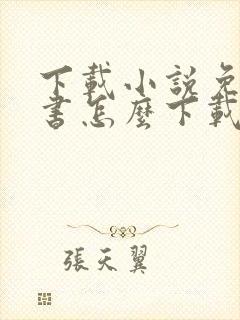 下載小說免
書怎麼下載
張天翼